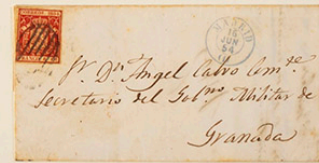 MADRID
16
JUN
54
Sr. Dn. Angel Calvo Comte.
Secretario del Gobno. Militar de
Granada